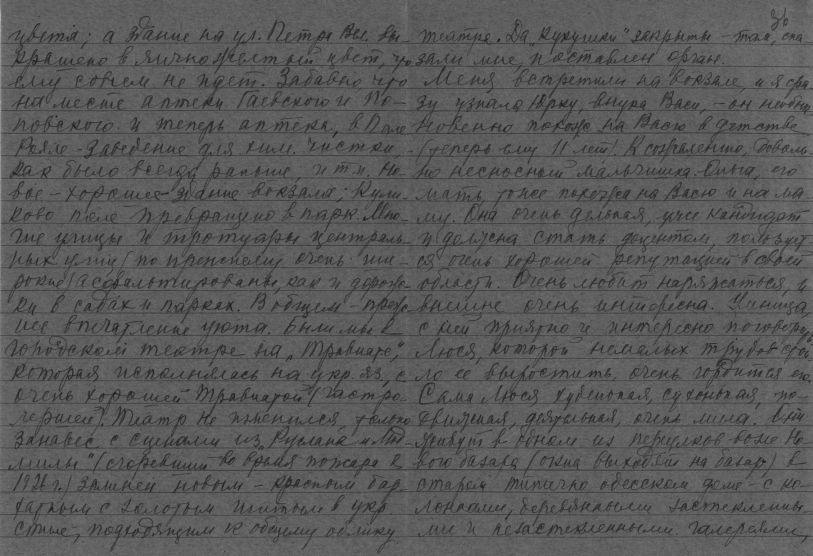 цветя; а здание на ул. Петра Вел. вы-
крашено в яично-желтый цвет, что
ему совсем не идет. Забавно, что
на месте аптеки Гаевского и По-
повского и теперь аптека, в Пале
Рояле - заведение для хим. чистки,
как было всегда раньше, и т.п. Но-
вое - хорошее здание вокзала; Кули-
ково поле превращено в парк. Мно-
гие улицы и тротуары централь-
ных улиц (по прежнему очень ши-
рокие) асфальтированы, как и дорож-
ки в садах и парках. В общем - преж-
нее впечатление уюта. Были мы в
городском театре на „Травиате",
которая исполнялась на укр. яз. с
очень хорошей Травиатой (гастро-
лершей). Театр не изменился, только
занавес с сценами из „Руслана и Люд-
милы" (сгоревший во время пожара в
1926 г.) заменен новым - красным бар-
хатным с золотым шитьем в укр.
стиле, подходящим к общему облику
36
театра. Да „Кукушки" закрыты - там, ска-
зали мне, поставлен орган.
Меня встретили на вокзале, и я сра-
зу узнала Юрку, внука Васи, - он необык-
новенно похож на Васю в детстве
(теперь ему 11 лет). К сожалению, доволь-
но несносный мальчишка. Ольга, его
мать, тоже похожа на Васю и на ма-
му. Она очень дельная, уже кандидат
и должна стать доцентом, пользует-
ся очень хорошей репутацией в своей
области. Очень любит наряжаться, и
внешне очень интересна. Умница,
с ней приятно и интересно поговорить.
Люся, которой немалых трудов стои-
ло ее вырастить, очень гордится ею.
Сама Люся худенькая, сухонькая, по-
движная, деятельная, очень мила. Они
живут в одном из переулков возле Но-
вого базара (окна выходят на базар) в
старом типично одесском доме - с ко-
лоннами, деревянными застекленны-
ми и незастекленными галереями,